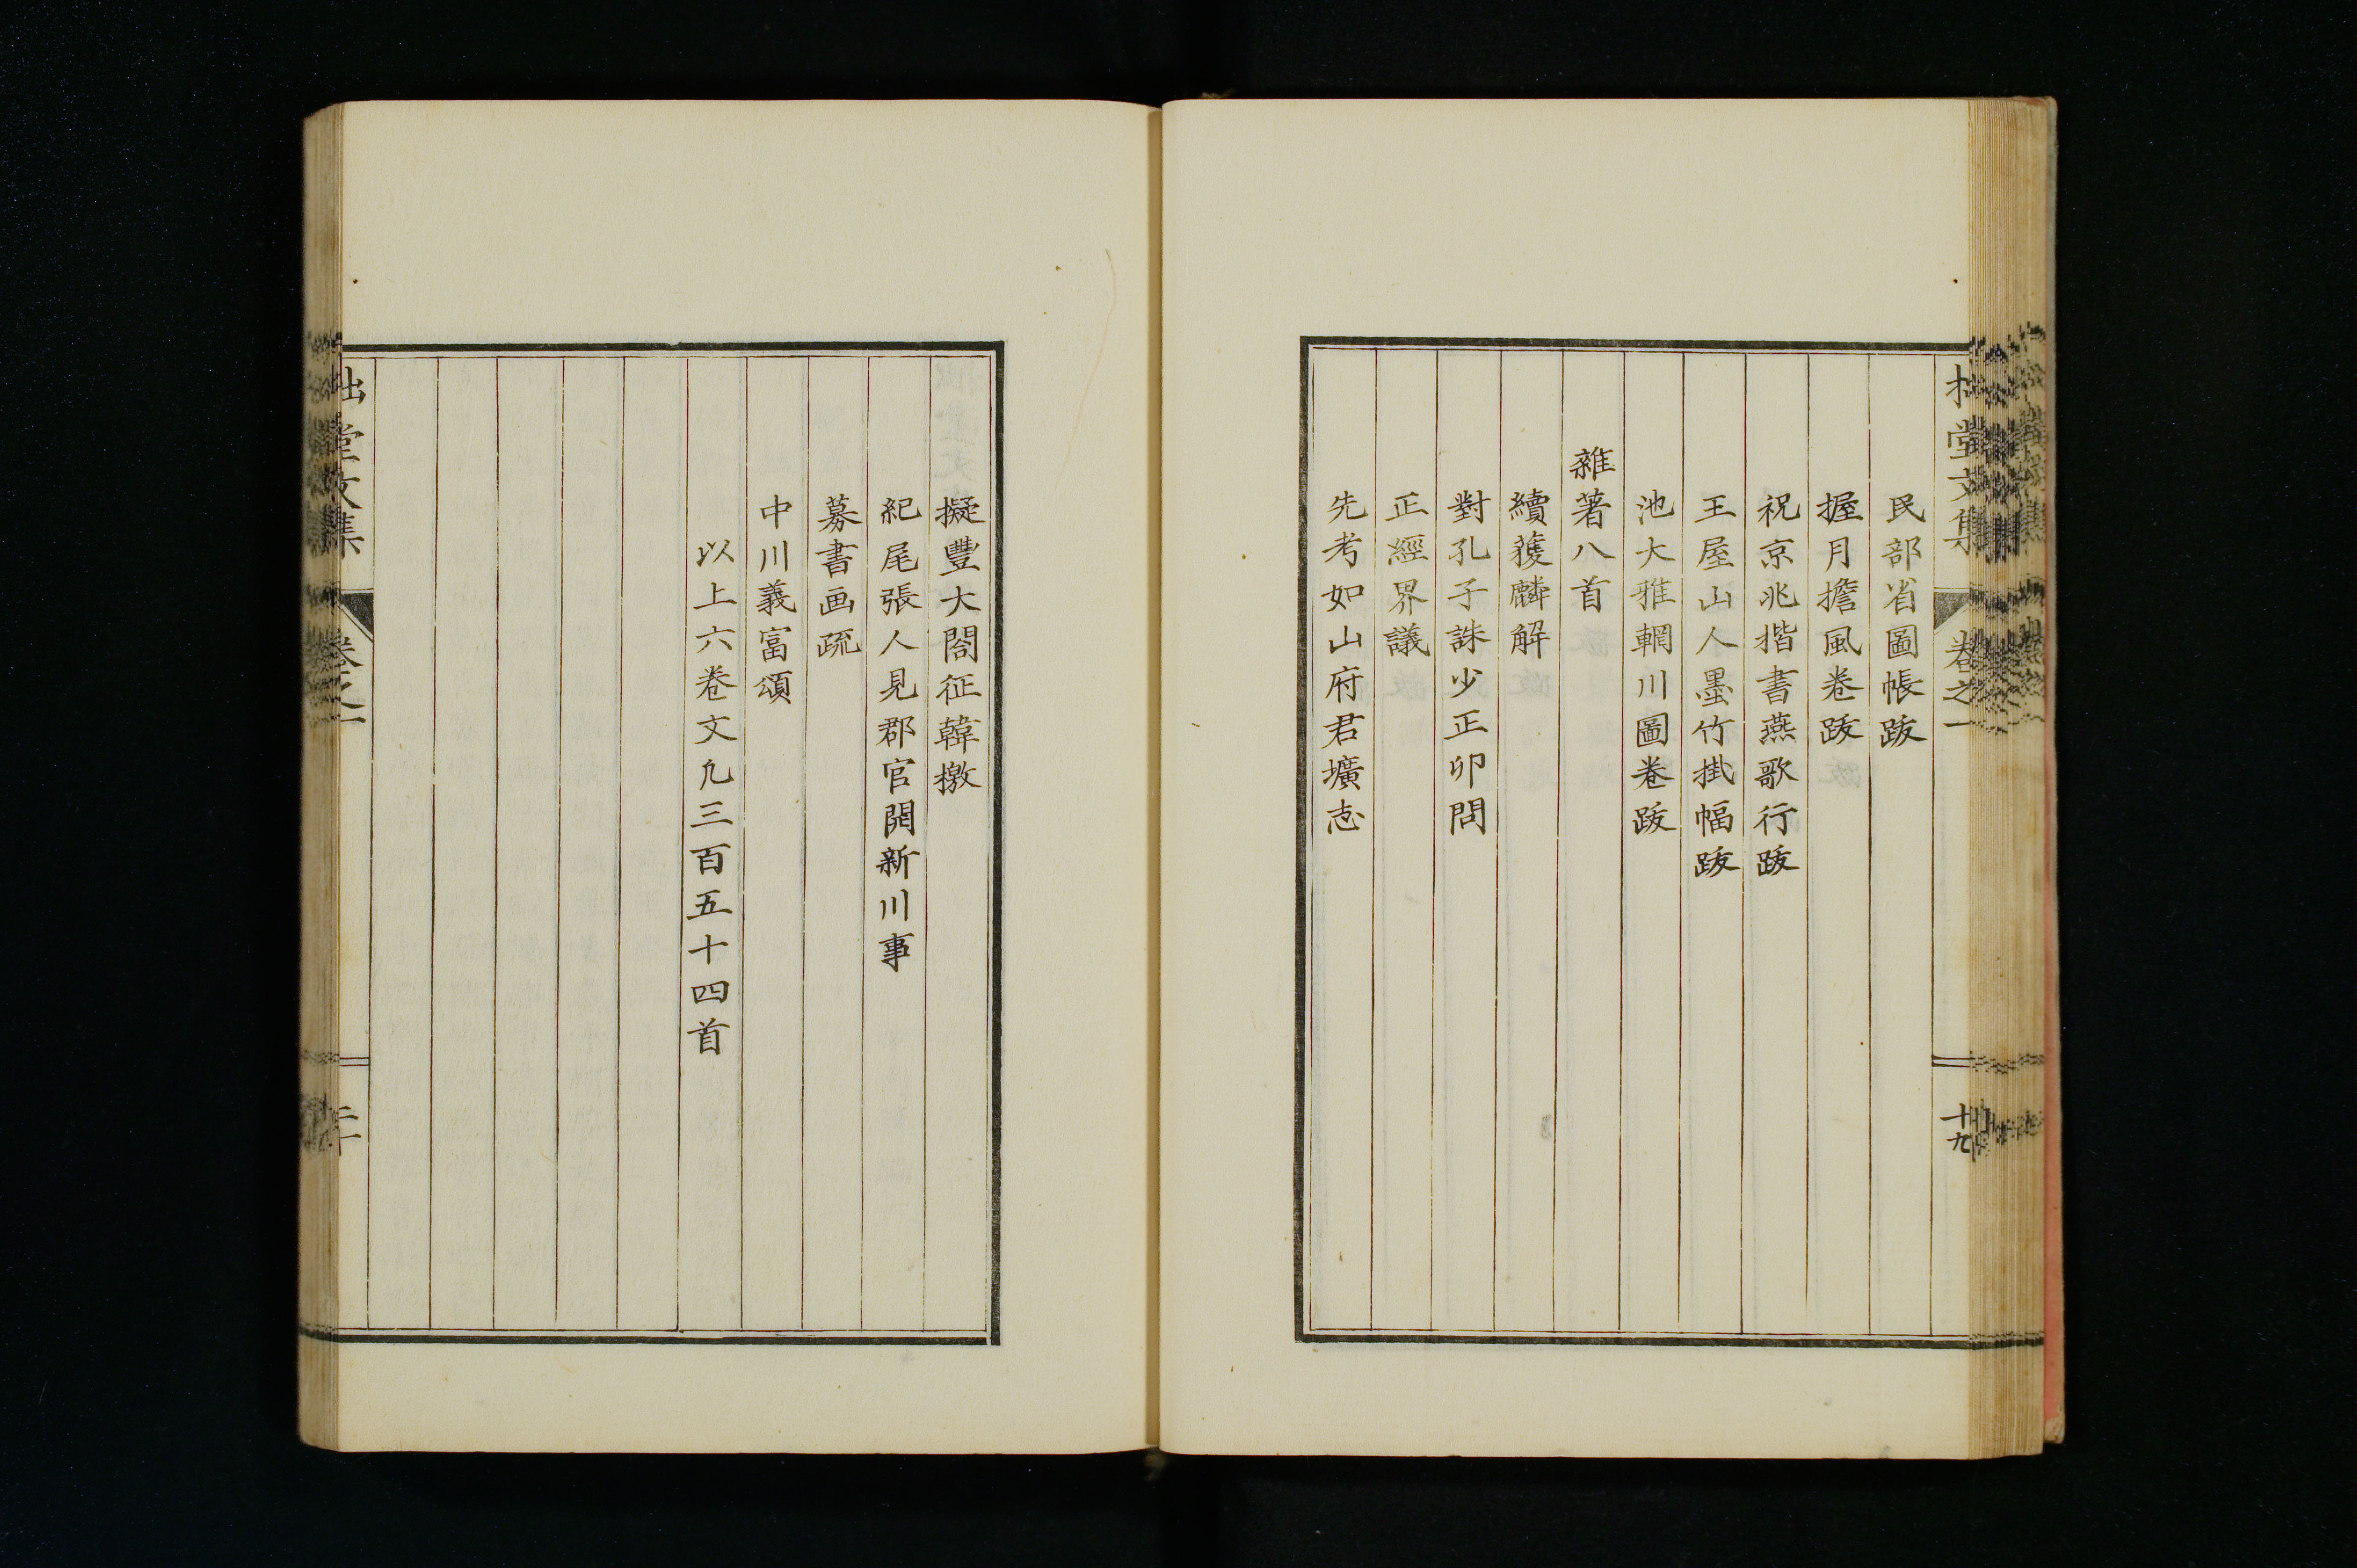 拙堂文集 卷之一 十九
民部省圖帳跋
握月擔風卷跋
祝京兆揩書燕歌行跋
王屋山人墨竹掛幅跋
池大雅輞川圖卷跋
雜著八首
續獲麟解
對孔子誅少正卯問
正經界議
先考如山府君壙志
擬豐大閤征韓檄
紀尾張人見郡官開新川事
募書画疏
中川義富頌
以上六卷文凡三百五十四首
拙堂文集 卷之一 二十